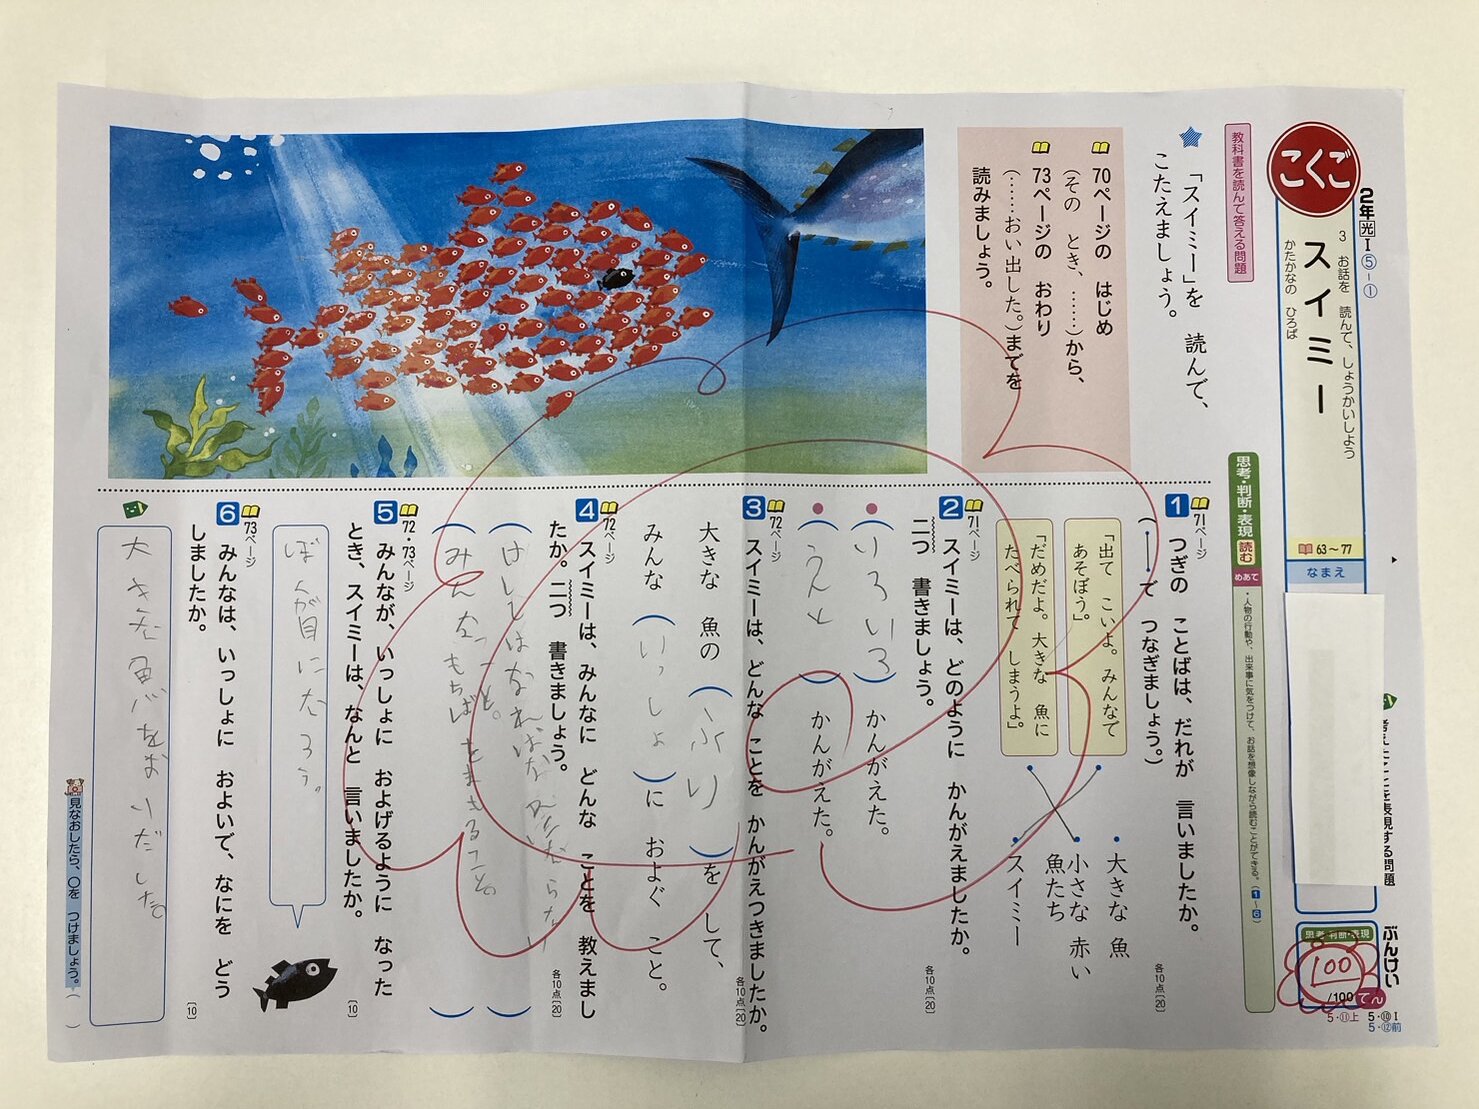 2年光Ⅰ⑤-①
こくご
3 お話を 読んで、しょうかいしよう
スイミー
かたかなの ひろば
63〜77
なまえ
考えたことを表現する問題
ぶんけい
思考・判断・表現
100
/100
てん
5・⑪上
5・⑩Ⅰ
5・⑫前
教科書を読んで答える問題
思考・判断・表現
読む
めあて
・人物の行動や、出来事に気をつけて、お話を想像しながら読むことができる。(1〜6)
「スイミー」を 読んで、
こたえましょう。
70ページの はじめ
(その とき、……)から、
73ページの おわり
(……おい出した。)までを
読みましょう。
1 71ページ
つぎの ことばは、だれが 言いましたか。
(・――・で つなぎましょう。)
各10点〔20〕
「出て こいよ。みんなで
あそぼう。」
「だめだよ。大きな 魚に
たべられて しまうよ。」
大きな 魚
小さな 赤い
魚たち
スイミー
2 71ページ
スイミーは、どのように かんがえましたか。
二つ 書きましょう。
各10点〔20〕
(いろいろ)かんがえた。
(うんと)かんがえた。
3 72ページ
スイミーは、どんな ことを かんがえつきましたか。
各10点〔20〕
大きな 魚の(ふり)を して、
みんな(いっしょ)に およぐ こと。
4 72ページ
スイミーは、みんなに どんな ことを 教えまし
たか。二つ 書きましょう。
各10点〔20〕
(けしてはなればなれにならない
こと。)
(みんなもちばをまもること。)
5 72・73ページ
みんなが、いっしょに およげるように なった
とき、スイミーは、なんと 言いましたか。
〔10〕
ぼくが目になろう。
6 73ページ
みんなは、いっしょに およいで、なにを どう
しましたか。
〔10〕
大きな魚をおいだした
見なおしたら、○を つけましょう。( )